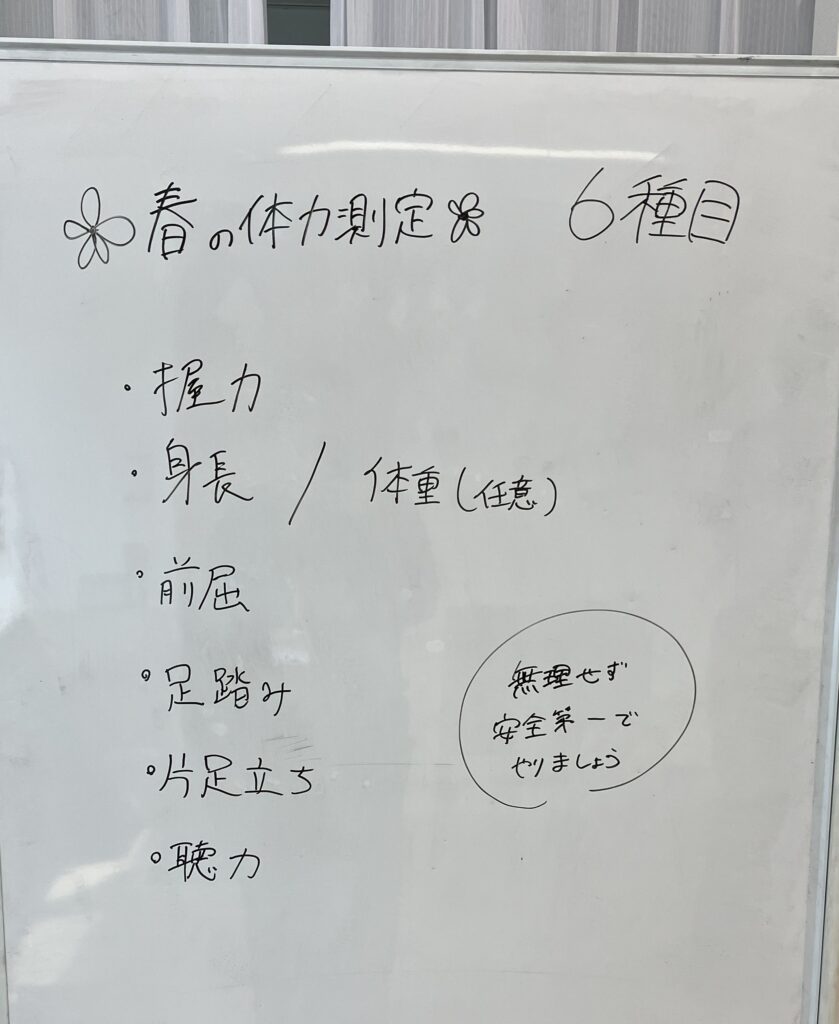 春の体力測定 6種目
・握力
・身長 / 体重(任意)
・前屈
・足踏み
・片足立ち
・聴力
無理せず
安全第一で
やりましょう